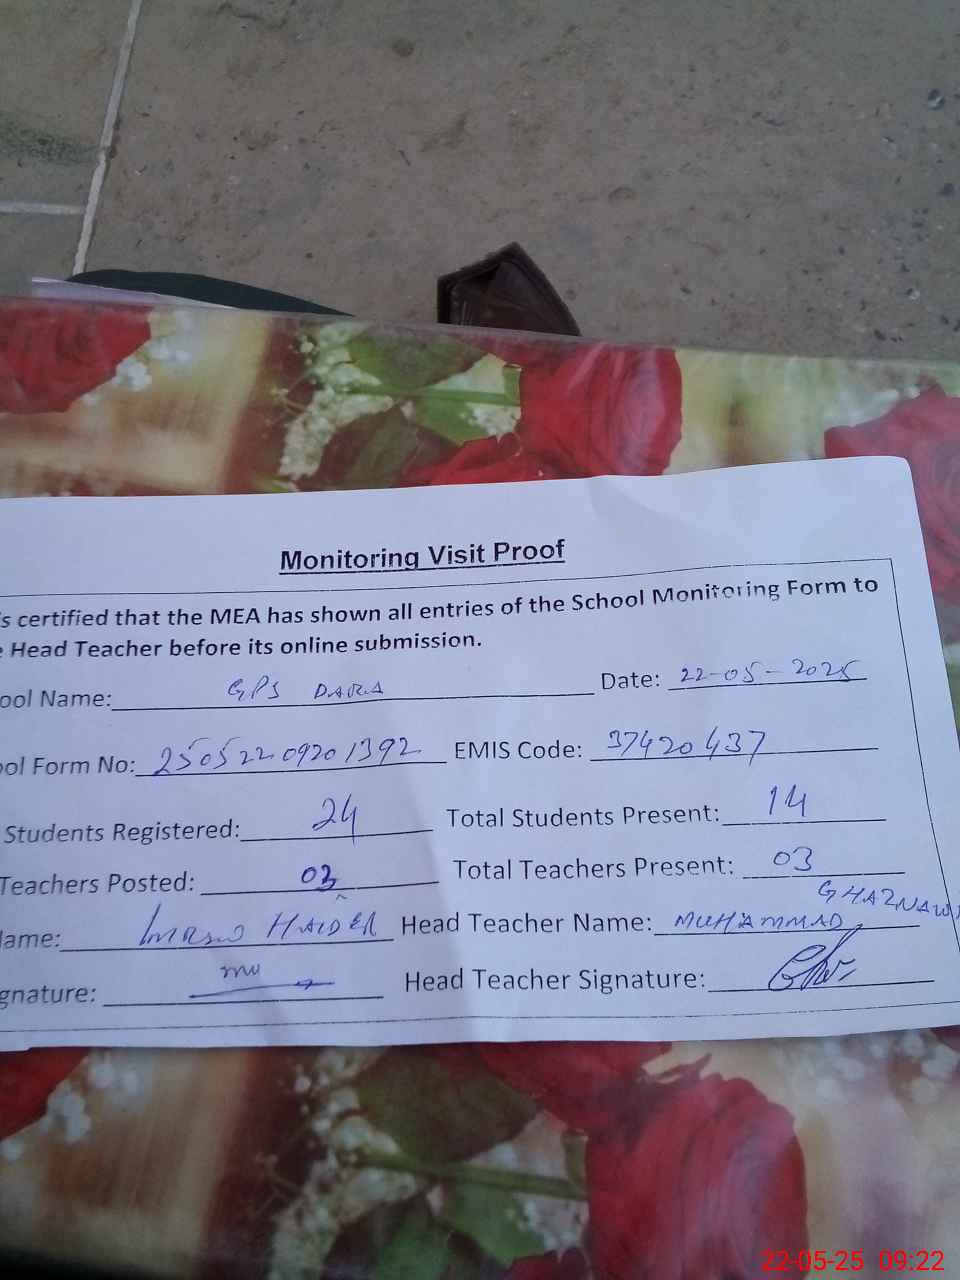 Monitoring Visit Proof
's certified that the MEA has shown all entries of the School Monitoring Form to
e Head Teacher before its online submission.
ool Name: GPS DARA Date: 22-05-2025
ool Form No: 25052209201392 EMIS Code: 37420437
Students Registered: 24 Total Students Present: 14
Teachers Posted: 03 Total Teachers Present: 03
Name: HAIDER Head Teacher Name: MUHAMMAD GHAZNAWI
gnature: Head Teacher Signature:
22-05-25 09:22